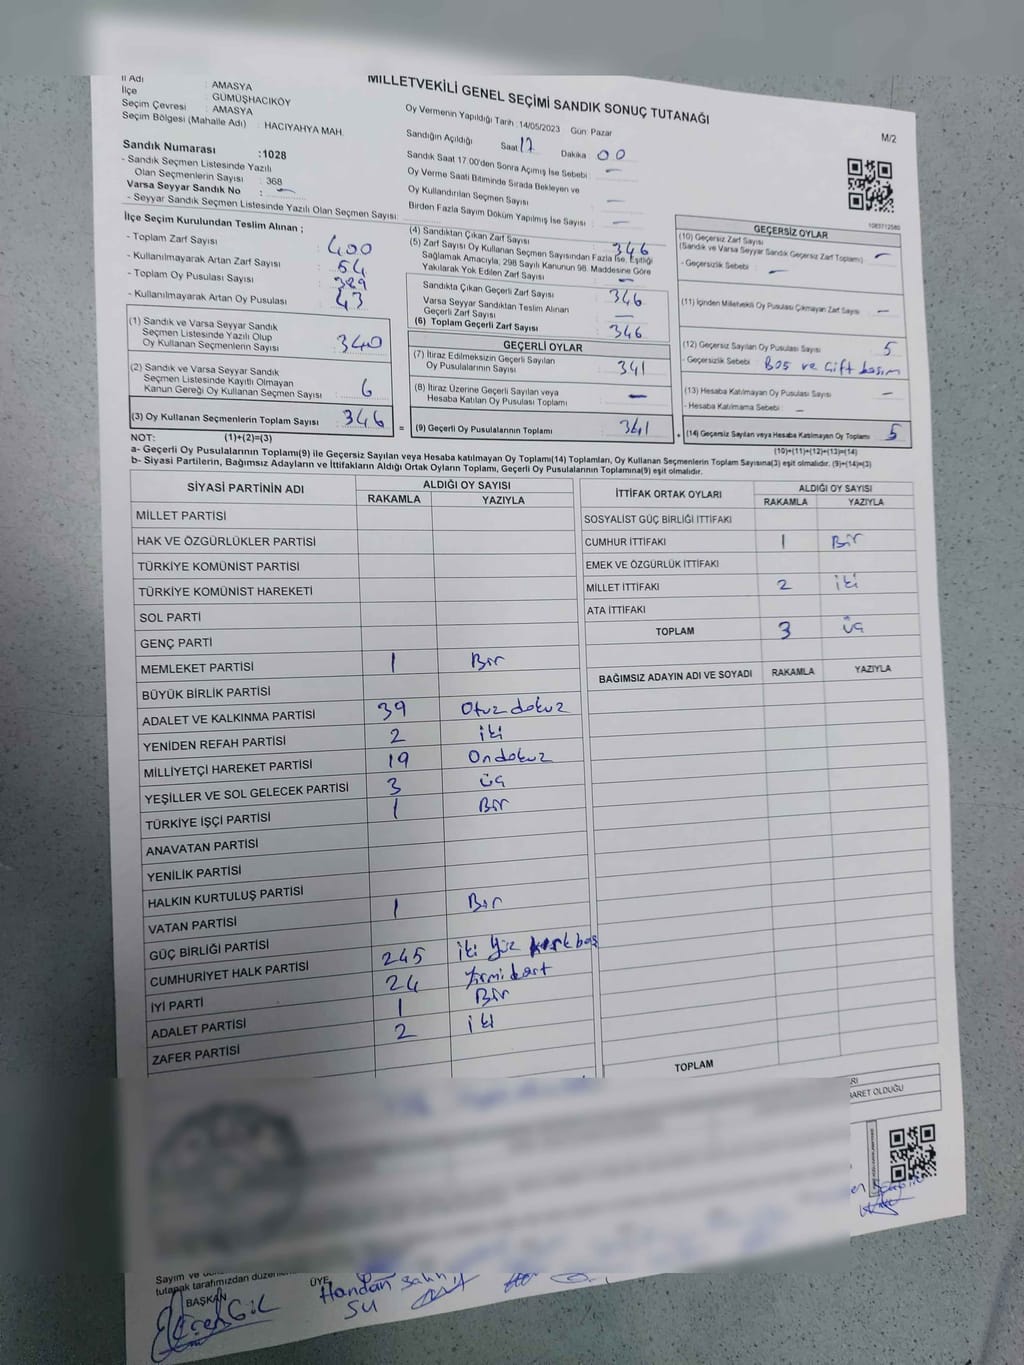 MİLLETVEKİLİ GENEL SEÇİMİ SANDIK SONUÇ TUTANAĞI
M/2
İl Adı : AMASYA
İlçe : GÜMÜŞHACIKÖY
Seçim Çevresi : AMASYA
Seçim Bölgesi (Mahalle Adı) : HACIYAHYA MAH.
Sandık Numarası : 1028
- Sandık Seçmen Listesinde Yazılı
Olan Seçmenlerin Sayısı : 368
Varsa Seyyar Sandık No : —
- Seyyar Sandık Seçmen Listesinde Yazılı Olan Seçmen Sayısı:
Oy Vermenin Yapıldığı Tarih :14/05/2023 Gün: Pazar
Sandığın Açıldığı Saat 17 Dakika 00
Sandık Saat 17.00'den Sonra Açımış İse Sebebi : —
Oy Verme Saati Bitiminde Sırada Bekleyen ve
Oy Kullandırılan Seçmen Sayısı : —
Birden Fazla Sayım Döküm Yapılmış İse Sayısı : —
İlçe Seçim Kurulundan Teslim Alınan ;
- Toplam Zarf Sayısı : 400
- Kullanılmayarak Artan Zarf Sayısı : 54
- Toplam Oy Pusulası Sayısı : 389
- Kullanılmayarak Artan Oy Pusulası : 43
(1) Sandık ve Varsa Seyyar Sandık
Seçmen Listesinde Yazılı Olup
Oy Kullanan Seçmenlerin Sayısı : 340
(2) Sandık ve Varsa Seyyar Sandık
Seçmen Listesinde Kayıtlı Olmayan
Kanun Gereği Oy Kullanan Seçmen Sayısı : 6
(3) Oy Kullanan Seçmenlerin Toplam Sayısı : 346
(4) Sandıktan Çıkan Zarf Sayısı : 346
(5) Zarf Sayısı Oy Kullanan Seçmen Sayısından Fazla İse, Eşitliği
Sağlamak Amacıyla, 298 Sayılı Kanunun 98. Maddesine Göre
Yakılarak Yok Edilen Zarf Sayısı : —
Sandıkta Çıkan Geçerli Zarf Sayısı : 346
Varsa Seyyar Sandıktan Teslim Alınan
Geçerli Zarf Sayısı : —
(6) Toplam Geçerli Zarf Sayısı : 346
GEÇERLİ OYLAR
(7) İtiraz Edilmeksizin Geçerli Sayılan
Oy Pusulalarının Sayısı : 341
(8) İtiraz Üzerine Geçerli Sayılan veya
Hesaba Katılan Oy Pusulası Toplamı : —
= (9) Geçerli Oy Pusulalarının Toplamı : 341
1083712580
GEÇERSİZ OYLAR
(10) Geçersiz Zarf Sayısı
(Sandık ve Varsa Seyyar Sandık Geçersiz Zarf Toplamı) : —
- Geçersizlik Sebebi : —
(11) İçinden Milletvekili Oy Pusulası Çıkmayan Zarf Sayısı : —
(12) Geçersiz Sayılan Oy Pusulası Sayısı : 5
- Geçersizlik Sebebi : Boş ve Çift basım
(13) Hesaba Katılmayan Oy Pusulası Sayısı : —
- Hesaba Katılmama Sebebi : —
+ (14) Geçersiz Sayılan veya Hesaba Katılmayan Oy Toplamı : 5
NOT: (1)+(2)=(3)
(10)+(11)+(12)+(13)=(14)
a- Geçerli Oy Pusulalarının Toplamı(9) ile Geçersiz Sayılan veya Hesaba katılmayan Oy Toplamı(14) Toplamları, Oy Kullanan Seçmenlerin Toplam Sayısına(3) eşit olmalıdır. (9)+(14)=(3)
b- Siyasi Partilerin, Bağımsız Adayların ve İttifakların Aldığı Ortak Oyların Toplamı, Geçerli Oy Pusulalarının Toplamına(9) eşit olmalıdır.
SİYASİ PARTİNİN ADI ALDIĞI OY SAYISI
RAKAMLA YAZIYLA
MİLLET PARTİSİ
HAK VE ÖZGÜRLÜKLER PARTİSİ
TÜRKİYE KOMÜNİST PARTİSİ
TÜRKİYE KOMÜNİST HAREKETİ
SOL PARTİ
GENÇ PARTİ
MEMLEKET PARTİSİ 1 Bir
BÜYÜK BİRLİK PARTİSİ
ADALET VE KALKINMA PARTİSİ 39 Otuz dokuz
YENİDEN REFAH PARTİSİ 2 iki
MİLLİYETÇİ HAREKET PARTİSİ 19 On dokuz
YEŞİLLER VE SOL GELECEK PARTİSİ 3 üç
TÜRKİYE İŞÇİ PARTİSİ 1 Bir
ANAVATAN PARTİSİ
YENİLİK PARTİSİ
HALKIN KURTULUŞ PARTİSİ
VATAN PARTİSİ 1 Bir
GÜÇ BİRLİĞİ PARTİSİ
CUMHURİYET HALK PARTİSİ 245 iki yüz kırk beş
İYİ PARTİ 24 Yirmi dört
ADALET PARTİSİ 1 Bir
ZAFER PARTİSİ 2 iki
İTTİFAK ORTAK OYLARI ALDIĞI OY SAYISI
RAKAMLA YAZIYLA
SOSYALİST GÜÇ BİRLİĞİ İTTİFAKI
CUMHUR İTTİFAKI 1 Bir
EMEK VE ÖZGÜRLÜK İTTİFAKI
MİLLET İTTİFAKI 2 iki
ATA İTTİFAKI
TOPLAM 3 üç
BAĞIMSIZ ADAYIN ADI VE SOYADI RAKAMLA YAZIYLA
TOPLAM
BARET OLDUĞU
tutanak tarafımızdan
BAŞKAN
ÜYE
Handan
SU